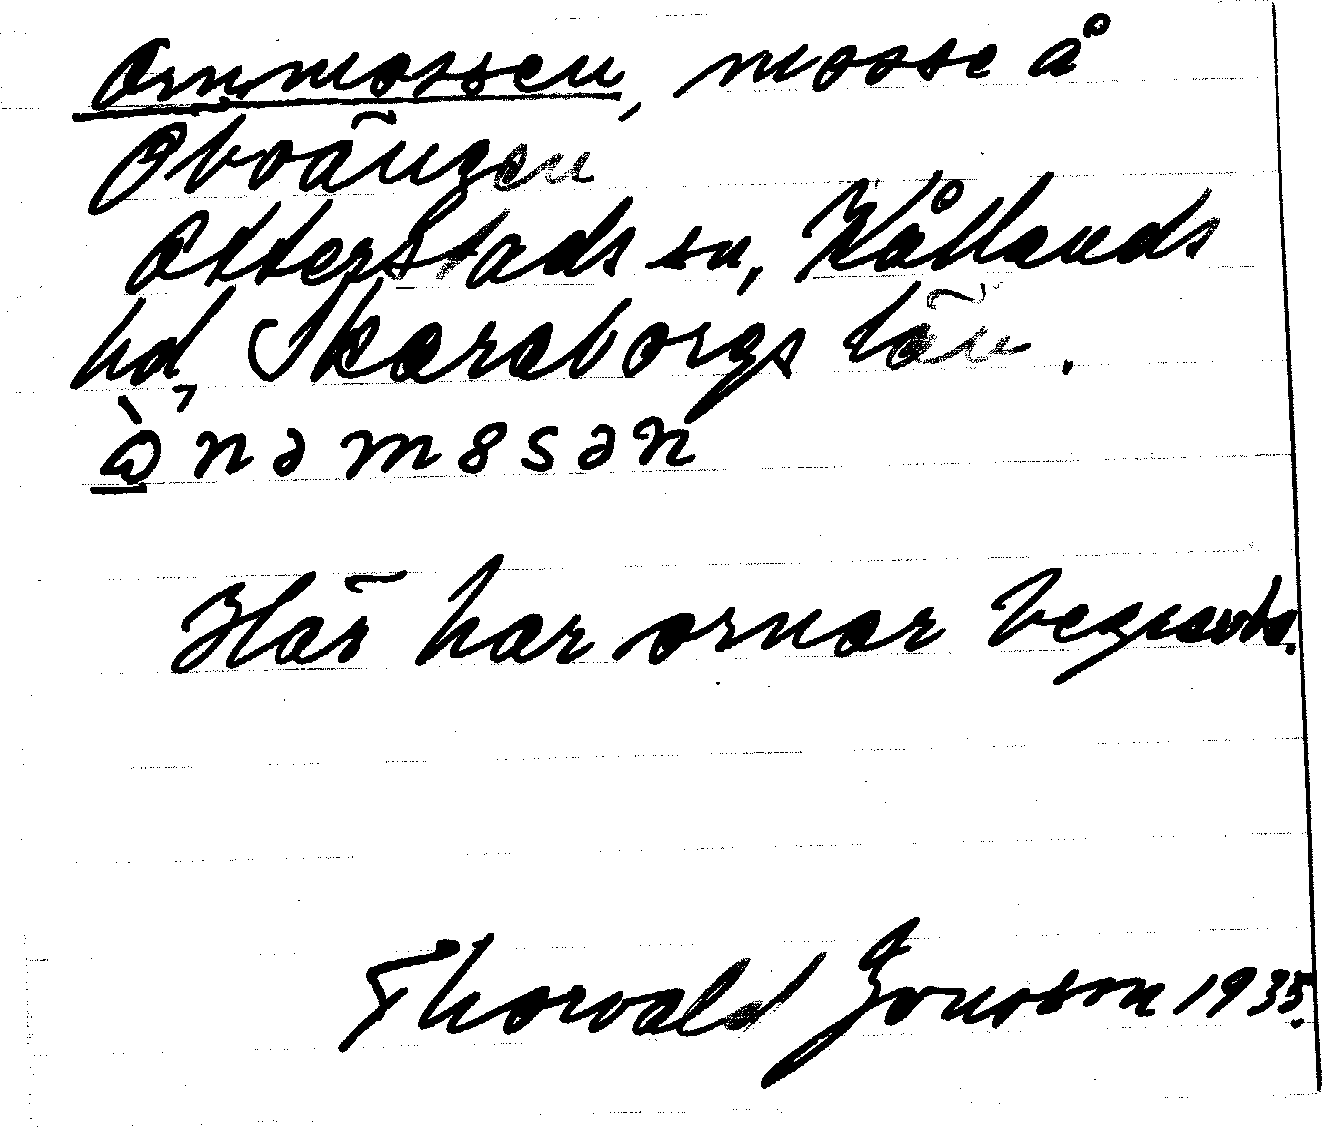 Ornmossen, mosse å
Oboängen
Otterstads sn, Kållands
hd, Skaraborgs län.
ò̱nəm8sən
Här har ornar begravts.
Thorvald Jonsson 1935.